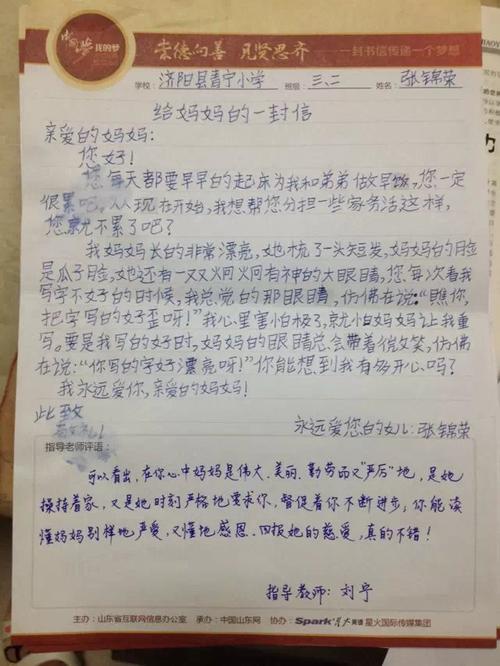 中国梦 我的梦
崇德向善 见贤思齐
一封书信传递一个梦想
学校：济阳县青宁小学 班级：三、二 姓名：张锦荣
给妈妈的一封信
亲爱的妈妈：
您好！
您每天都要早早的起床为我和弟弟做早饭，您一定
很累吧。从现在开始，我想帮您分担一些家务活这样，
您就不累了吧？
我妈妈长的非常漂亮，她梳了一头短发，妈妈的脸
是瓜子脸，她还有一双炯炯有神的大眼睛，您每次看我
写字不好的时候，我总觉的那眼睛，仿佛在说：“瞧你，
把字写的好歪呀！”我心里害怕极了，就怕妈妈让我重
写。要是我写的好时，妈妈的眼睛总会带着微笑，仿佛
在说：“你写的字好漂亮呀！”你能想到我有多开心吗？
我永远爱你，亲爱的妈妈！
此致
永远爱您的女儿：张锦荣
指导老师评语：
可以看出，在你心中妈妈是伟大、美丽、勤劳而又“严厉”地，是她
操持着家，又是她时刻严格地要求你，督促着你不断进步，你能读
懂妈妈别样地严爱，又懂地感恩、回报她的慈爱，真的不错！
指导教师：刘宁
主办：山东省互联网信息办公室 承办：中国山东网 协办：Spark星火英语 星火国际传媒集团